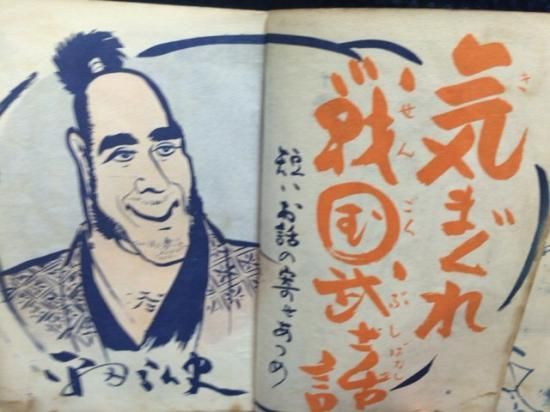 気まぐれ
き
戦国武士話
せんごくぶしばなし
短いお話の寄せあつめ
平田弘史